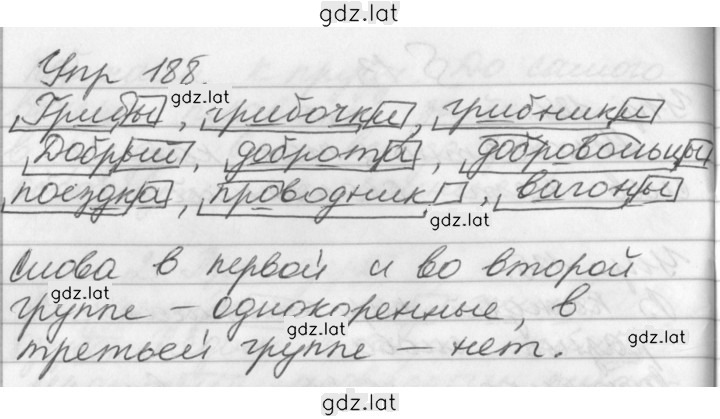 gdz.lat
Упр 188.
gdz.lat
Грибы, грибочки, грибники
Добрый, доброта, добровольцы
поездка, проводник, вагоны
gdz.lat
Слова в первой и во второй
gdz.lat
группе – однокоренные, в
gdz.lat
gdz.lat
третьей группе – нет.
gdz.lat